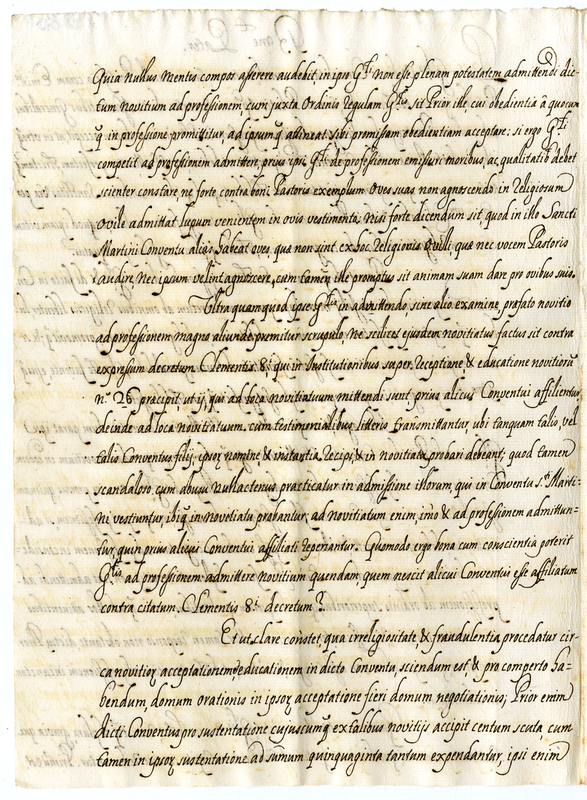 Quia nullus mentis compos asserere audebit, in ipso Gñli non esse plenam potestatem admittendi dic-
tum novitium ad professionem cum juxta Ordinis Regulam Gñlis sit Prior ille, cui obedientia à quocun
q; in professione promittitur, ad ipsumq; attineat sibi promissam obedientiam acceptare: si ergo Gñli
competit ad professionem admittere, prius ipsi Gñli de professionem emissuri moribus, ac qualitatib' debet
scienter constare, ne forte contra boni Pastoris exemplum Oves suas non agnoscendo in Religiosum
Ovile admittat lupum venientem in ovis vestimento, nisi forte dicendum sit, quod in illo Sancti
Martini Conventu alias habeat oves, quæ non sint ex hoc Religionis Ovili, quæ nec vocem Pastoris
audire, nec ipsum velint agnoscere, cum tamen ille promptus sit animam suam dare pro ovibus suis.
Ultra quamquod ipse Gñlis in admittendo sine alio examine, præfato novitio
ad professionem magno aliunde premitur scrupulo, ne sedices ejusdem novitiatus factus sit contra
expressum decretum Clementis 8.i qui in Institutionibus super receptione & educatione novitiorũ
n.o 26 præcipit, ut ij, qui ad loca novitiatuum mittendi sunt, prius alicui Conventui affilientur
deinde ad loca novitiatuum cum testimonialibus litteris transmittantur, ubi tanquam talis, vel
talis Conventus filij, ipsoꝝ nomine, & instantia recipi, & in novitiatu probari debeant; quod tamen
scandaloso cum abusu nullactenus practicatur in admissione illorum, qui in Conventu S.ti Marti-
ni vestiuntur, ibiq; in novitiatu probantur, ad novitiatum enim, imò & ad professionem admittun-
tur, quin prius alicui Conventui affiliati reperiantur. Quomodo ergo bona cum conscientia poterit
Gñlis ad professionem admittere novitium quendam, quem noscit alicui Conventui esse affiliatum
contra citatum Clementis 8.i decretum?
Et ut clare constet, qua irreligiositate, & fraudulentia procedatur cir-
ca novitioꝝ acceptationem & educationem in dicto Conventu sciendum est, & pro comperto ha-
bendum, domum orationis in ipsoꝝ acceptatione fieri domum negotiationis; Prior enim
dicti Conventus pro sustentatione cujuscumq; ex talibus novitijs accipit centum scuta, cum
tamen in ipsoꝝ sustentatione ad summum quinquaginta tantum expendantur, ipsi enim